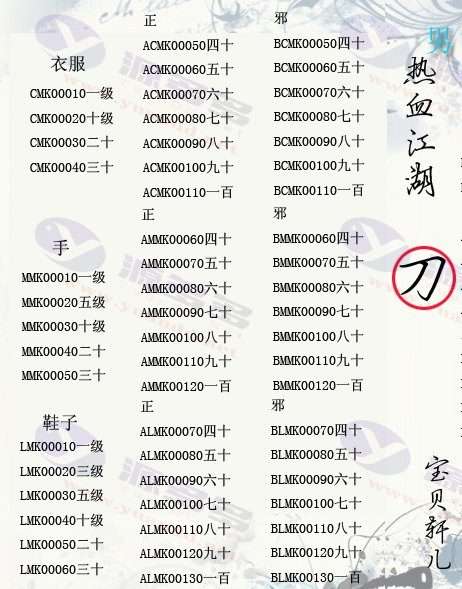 男
热血江湖
刀
宝贝轩儿
衣服
CMK00010一级
CMK00020十级
CMK00030二十
CMK00040三十
正
ACMK00050四十
ACMK00060五十
ACMK00070六十
ACMK00080七十
ACMK00090八十
ACMK00100九十
ACMK00110一百
邪
BCMK00050四十
BCMK00060五十
BCMK00070六十
BCMK00080七十
BCMK00090八十
BCMK00100九十
BCMK00110一百
手
MMK00010一级
MMK00020五级
MMK00030十级
MMK00040二十
MMK00050三十
正
AMMK00060四十
AMMK00070五十
AMMK00080六十
AMMK00090七十
AMMK00100八十
AMMK00110九十
AMMK00120一百
邪
BMMK00060四十
BMMK00070五十
BMMK00080六十
BMMK00090七十
BMMK00100八十
BMMK00110九十
BMMK00120一百
鞋子
LMK00010一级
LMK00020三级
LMK00030五级
LMK00040十级
LMK00050二十
LMK00060三十
正
ALMK00070四十
ALMK00080五十
ALMK00090六十
ALMK00100七十
ALMK00110八十
ALMK00120九十
ALMK00130一百
邪
BLMK00070四十
BLMK00080五十
BLMK00090六十
BLMK00100七十
BLMK00110八十
BLMK00120九十
BLMK00130一百